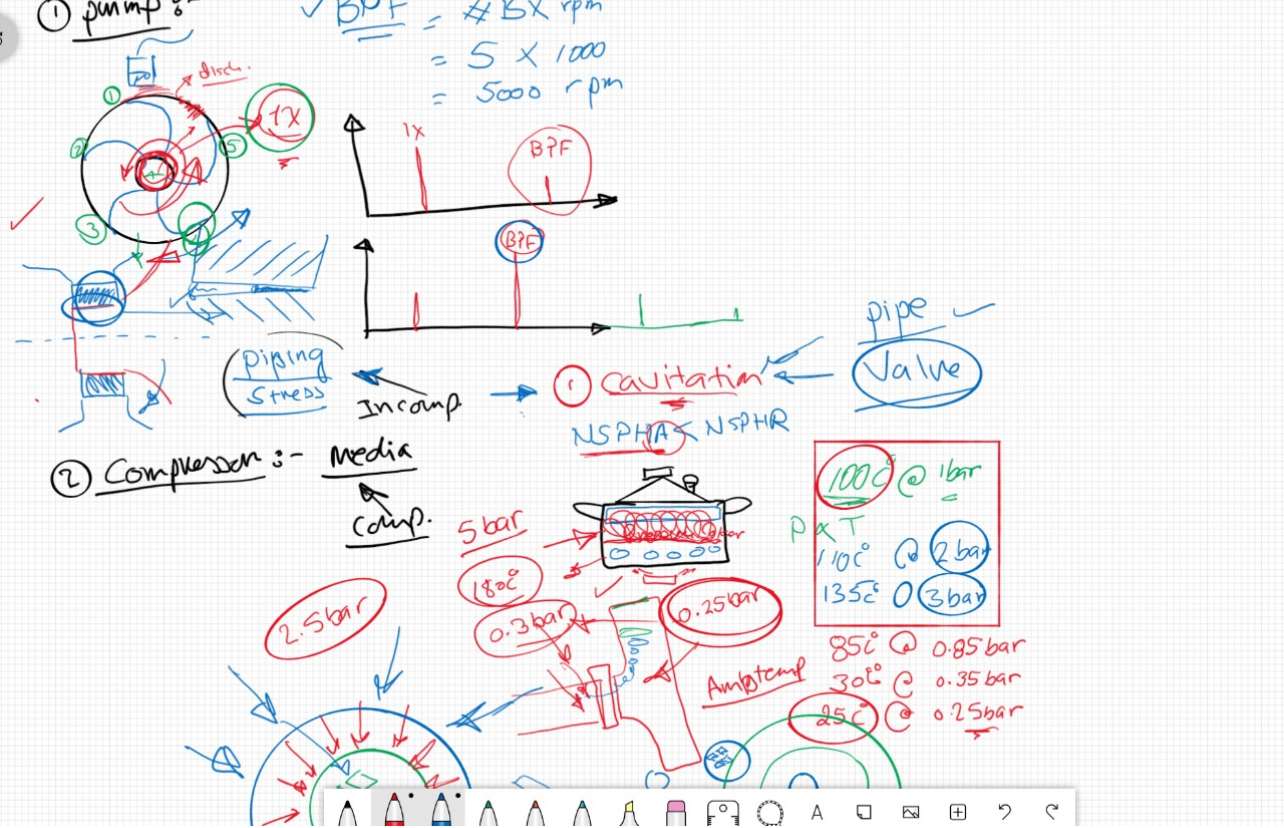 ① Pump :-
✓ BPF = #B X rpm
= 5 X 1000
= 5000 rpm
disch.
①
1X
②
⑤
③
1X
BPF
BPF
pipe ✓
Piping
Stress
Incomp.
① Cavitation
Valve
NSPHA < NSPHR
② Compressor :- Media
Comp.
100c° @ 1bar
P α T
110c° @ 2bar
135c° @ 3bar
5bar
180c°
2.5bar
0.3bar
0.25bar
85c° @ 0.85bar
30c° @ 0.35bar
25c° @ 0.25bar
Ambtemp
A